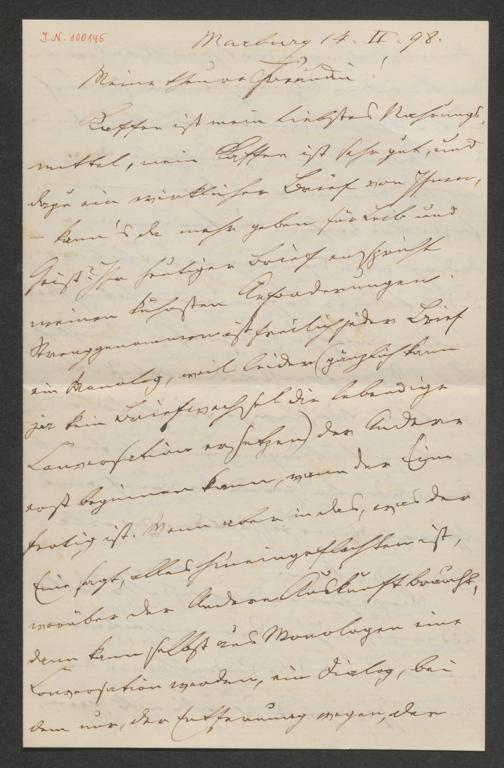 J.N. 100145
Marburg 14. II. 98.
Meine theure Freundin!
Kaffee ist mein liebstes Nahrungs-
mittel, mein Kaffee ist sehr gut, und
dazu ein wirklicher Brief von Ihnen,
– kann's da mehr geben für Leib und
Geist? Ihr heutiger Brief entspricht
meinen kühnsten Anforderungen.
Strenggenommen ist freilich jeder Brief
ein Monolog, weil leider (gänzlich kann
ja kein Briefwechsel die lebendige
Conversation ersetzen) der Andere
erst beginnen kann, wenn der Eine
fertig ist. Wenn aber in das, was der
Eine sagt, alles hineingeflochten ist,
worüber der Andere Auskunft braucht,
dann kann selbst aus Monologen eine
Conversation werden, ein Dialog, bei
dem nur, der Entfernung wegen, der